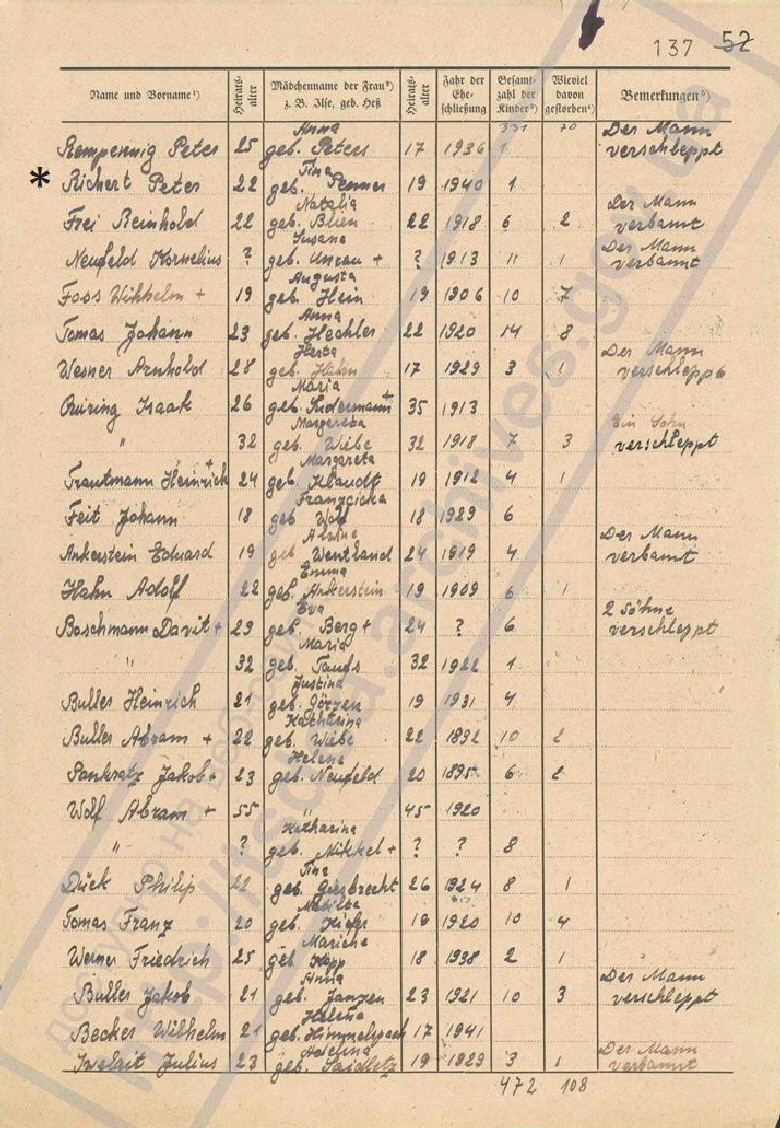 137 52
Name und Vorname¹) Heiratsalter Mädchenname der Frau²) z. B. Ilse, geb. Heß Heiratsalter Jahr der Eheschließung Gesamtzahl der Kinder³) Wieviel davon gestorben⁴) Bemerkungen⁵)
Anna 331 70 Der Mann
Rempennig Peter 25 geb. Peters 17 1936 1 verschleppt
Tina
* Richert Peter 22 geb. Penner 19 1940 1
Natalia Der Mann
Frei Reinhold 22 geb. 22 1918 6 2 verbannt
Susana Der Mann
Neufeld Kornelius ? geb. Unrau + ? 1913 11 1 verbannt
Augusta
Foss Wilhelm + 19 geb. Hein 19 1906 10 7
Anna
Tomas Johann 23 geb. Hechler 22 1920 14 8
Herta Der Mann
Wesner Arnhold 28 geb. Hahn 17 1929 3 1 verschleppt
Maria
Isaak 26 geb. Sudermann + 35 1913
Margareta Ein Sohn
" 32 geb. Wiebe 32 1918 7 3 verschleppt
Margareta
Trautmann Heinrich + 24 geb. Klaudt 19 1912 4 1
Franzciska
Feit Johann 18 geb Wolf 18 1929 6
Der Mann
Ankerstein Eduard 19 geb Wentland 24 1919 4 verbannt
Emma
Hahn Adolf 22 geb. Ankerstein 19 1909 6 1
Eva 2 Söhne
Boschmann Davit + 29 geb. Berg + 24 ? 6 verschleppt
Maria
" 32 geb. 32 1922 1
Justina
Buller Heinrich 21 geb. Görzen 19 1931 4
Katharina
Buller Abram + 22 geb. Wiebe 22 1892 10 2
Helene
Pankratz Jakob + 23 geb. Neufeld 20 1895 6 2
Wolf Abram + 55 " 45 1920
Katharina
" ? geb. Nikkel + ? ? 8
Tina
Dück Philip 22 geb. Giesbrecht 26 1924 8 1
Tomas Franz 20 geb. 19 1920 10 4
Werner Friedrich 25 geb 18 1938 2 1
Anna Der Mann
Buller Jakob 21 geb. Janzen 23 1921 10 3 verschleppt
Helena
Becker Wilhelm 21 geb. Himmelspach 17 1941
Der Mann
Julius 23 geb. 19 1929 3 1 verbannt
472 108